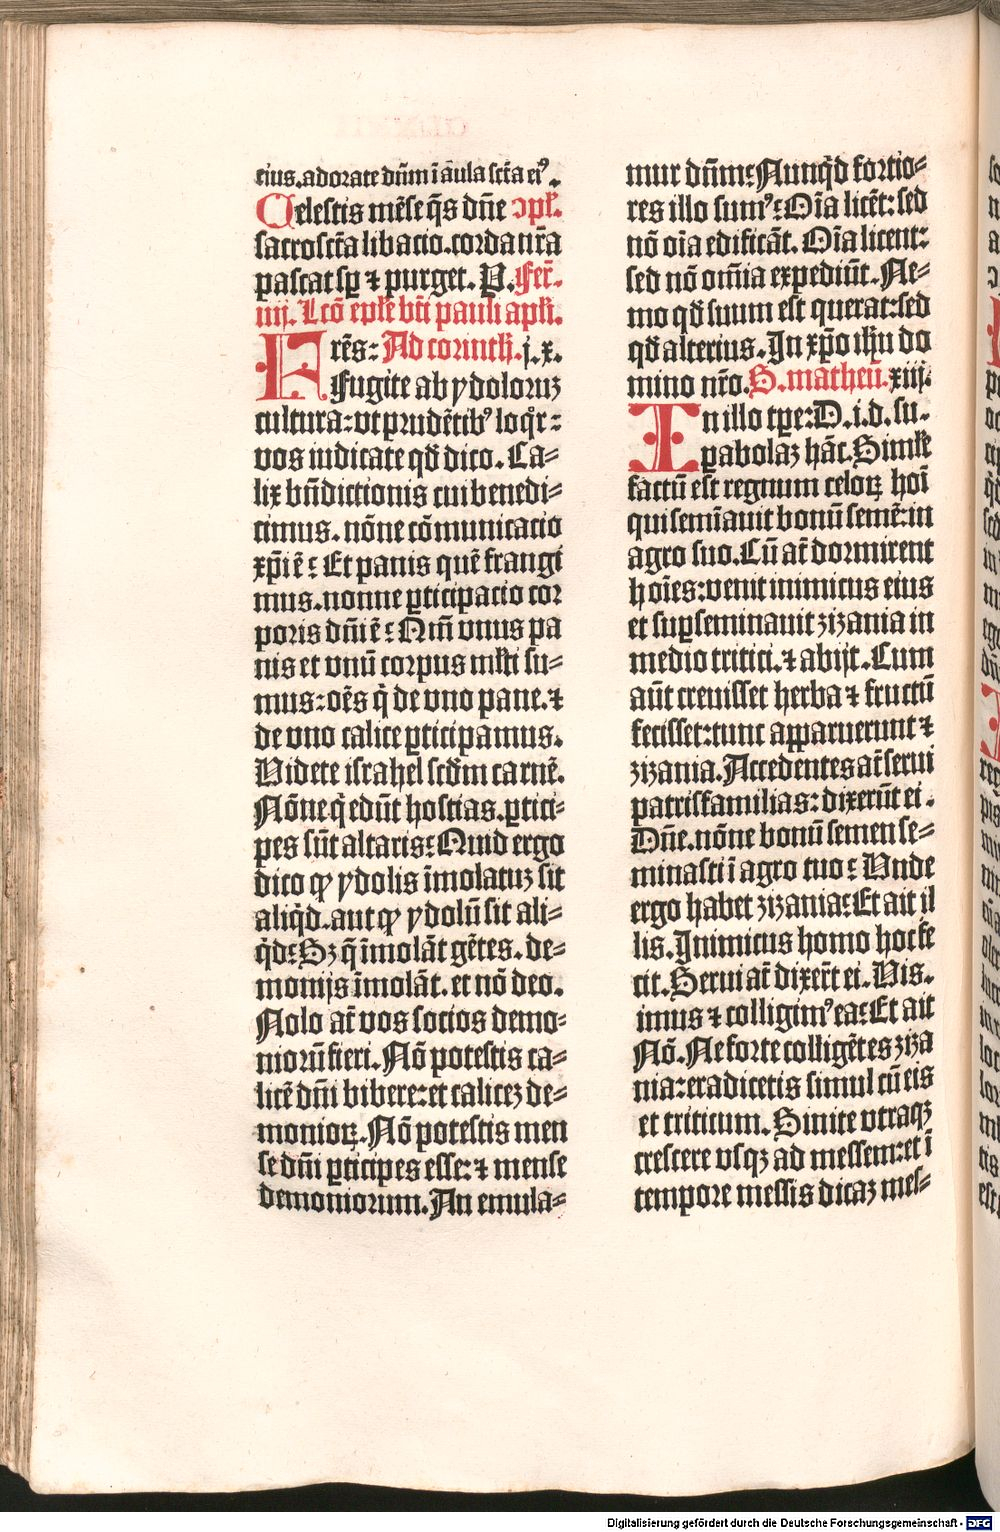 eius.adorate dn̄m ī aula sct̄a ei⁹.
Celestis mēse q̄s dn̄e ↄpl̄.
sacrosct̄a libacio.corda nr̄a
pascat sꝑ ⁊ purget. P. Fer̄.
iiij. Lcō epl̄e bt̄i pauli apl̄i.
Fres: Ad corinth̄.j.x.
Fugite ab ydoloruꝫ
cultura:vt prudētib⁹ loq̄r:
vos iudicate qd̄ dico. Ca⸗
lix bn̄dictionis cui benedi⸗
cimus. nōne cōmunicacio
xp̄i ē: Et panis quē frangi
mus.nonne ꝑticipacio cor
poris dn̄i ē: Qm̄ vnus pa
nis et vnū corpus ml̄ti su⸗
mus:oēs q̄ de vno pane.⁊
de vno calice ꝑticipamus.
Videte israhel scd̄m carnē.
Nōne q̄ edūt hostias.ꝑtici⸗
pes sūt altaris: Quid ergo
dico ꝙ ydolis īmolatuꝫ sit
aliq̄d.aut ꝙ ydolū sit ali⸗
q̄d: Sꝫ q̄ īmolāt gētes. de⸗
monijs īmolāt. et nō deo.
Nolo at̄ vos socios demo⸗
niorū fieri. Nō potestis ca⸗
licē dn̄i bibere:et calicez de⸗
monioꝝ. Nō potestis men
se dn̄i ꝑticipes esse: ⁊ mense
demoniorum. An emula⸗
mur dn̄m: Nunq̄d fortio⸗
res illo sum⁹: Oīa licēt: sed
nō oīa edificāt. Oīa licent:
sed nō omīa expediūt. Ne⸗
mo qd̄ suum est querat:sed
qd̄ alterius. In xp̄o ih̄u do
mino nr̄o. S. matheū. xiij.
In illo tp̄e: D. i. d. su.
ꝑabolaꝫ hāc. Simil̄e
factū est regnum celoꝝ hoī
qui semīauit bonū semē: in
agro suo. Cū at̄ dormirent
hoīes: venit inimicus eius
et suꝑseminauit zizania in
medio tritici. ⁊ abijt. Cum
aūt creuisset herba ⁊ fructū
fecisset: tunc apparuerunt ⁊
zizania. Accedentes at̄ serui
patrisfamilias: dixerūt ei.
Dn̄e. nōne bonū semen se⸗
minasti ī agro tuo: Vnde
ergo habet zizania: Et ait il
lis. Inimicus homo hoc fe
cit. Serui at̄ dixer̄t ei. Vis.
imus ⁊ colligim⁹ ea: Et ait
Nō. Ne forte colligētes ziza
nia: eradicetis simul cū eis
et triticum. Sinite vtraqꝫ
crescere vsqꝫ ad messem: et ī
tempore messis dicaꝫ mes⸗
Digitalisierung gefördert durch die Deutsche Forschungsgemeinschaft - DFG